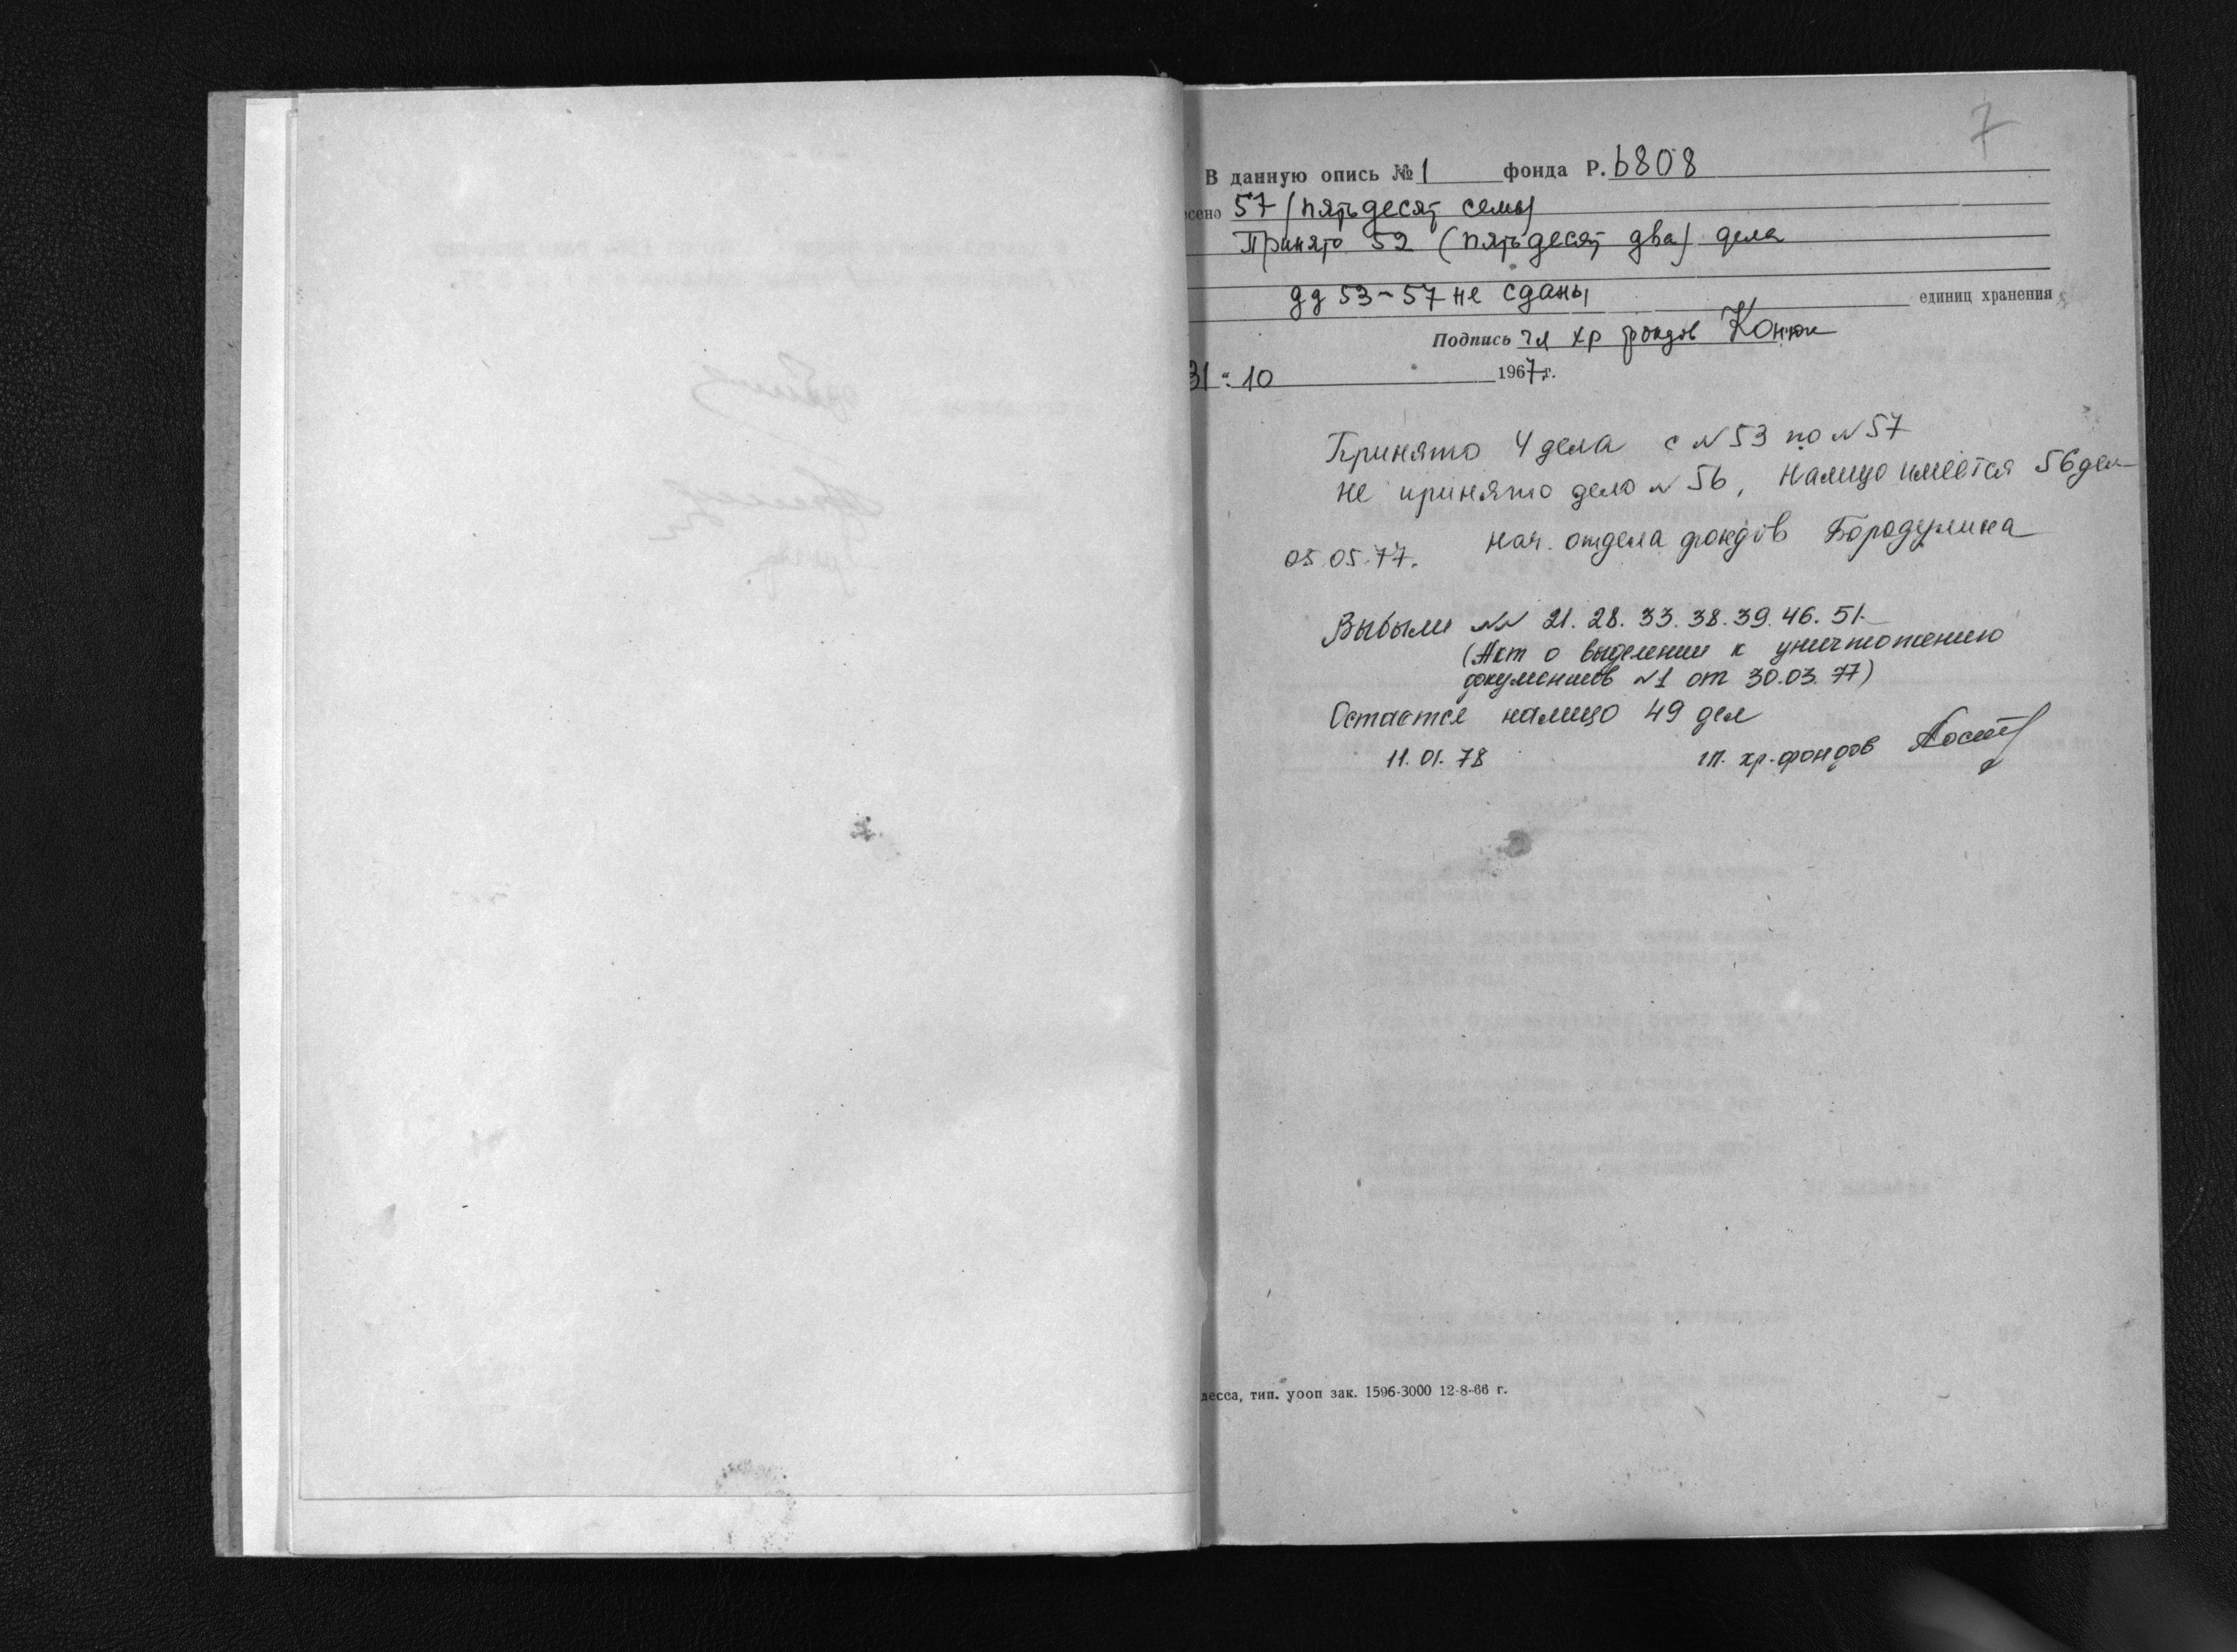 7
В данную опись № 1 фонда Р. 6808
сено 57 (пятьдесят семь)
Принято 52 (пятьдесят два) дела
дд 53-57 не сданы единиц хранения
Подпись гл хр фондов Конюк
31 " 10 1967 г.
Принято 4 дела с N 53 по N 57
не принято дело N 56, налицо имеется 56 дел
05.05.77. нач. отдела фондов Бородулина
Выбыли NN 21. 28. 33. 38. 39. 46. 51.
(Акт о выделении к уничтожению
документов N1 от 30.03.77)
Остается налицо 49 дел
11.01.78 гл. хр. фондов
десса, тип. уооп зак. 1596-3000 12-8-66 г.